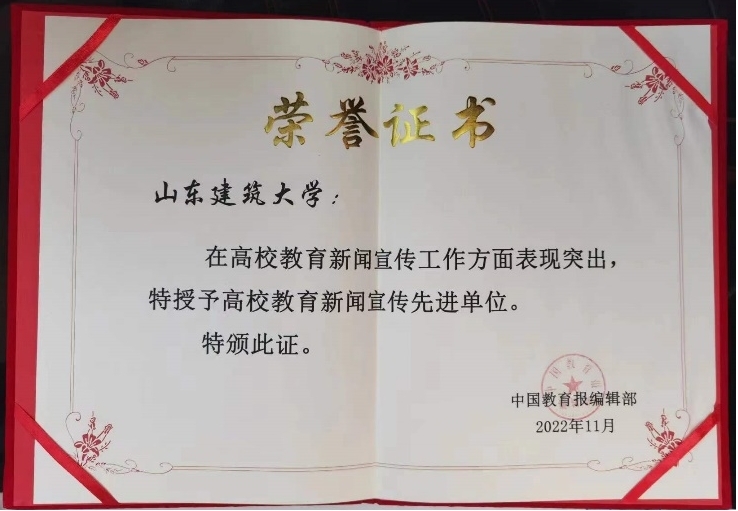 荣誉证书
山东建筑大学：
在高校教育新闻宣传工作方面表现突出，
特授予高校教育新闻宣传先进单位。
特颁此证。
中国教育报编辑部
2022年11月